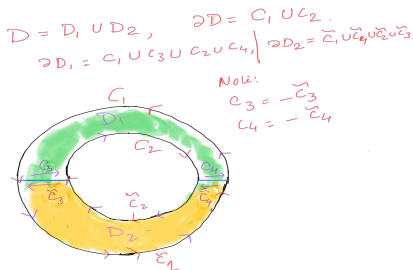 D = D₁ ∪ D₂, ∂D = C₁ ∪ C₂.
∂D₁ = C₁ ∪ C₃ ∪ C₂ ∪ C₄, | ∂D₂ = C̃₁ ∪ C̃₄ ∪ C̃₂ ∪ C̃₃
Note:
C₃ = − C̃₃
C₄ = − C̃₄
C₁
D₁
C₂
C₃ C₄
C̃₃ C̃₂ C̃₄
D₂
C̃₁